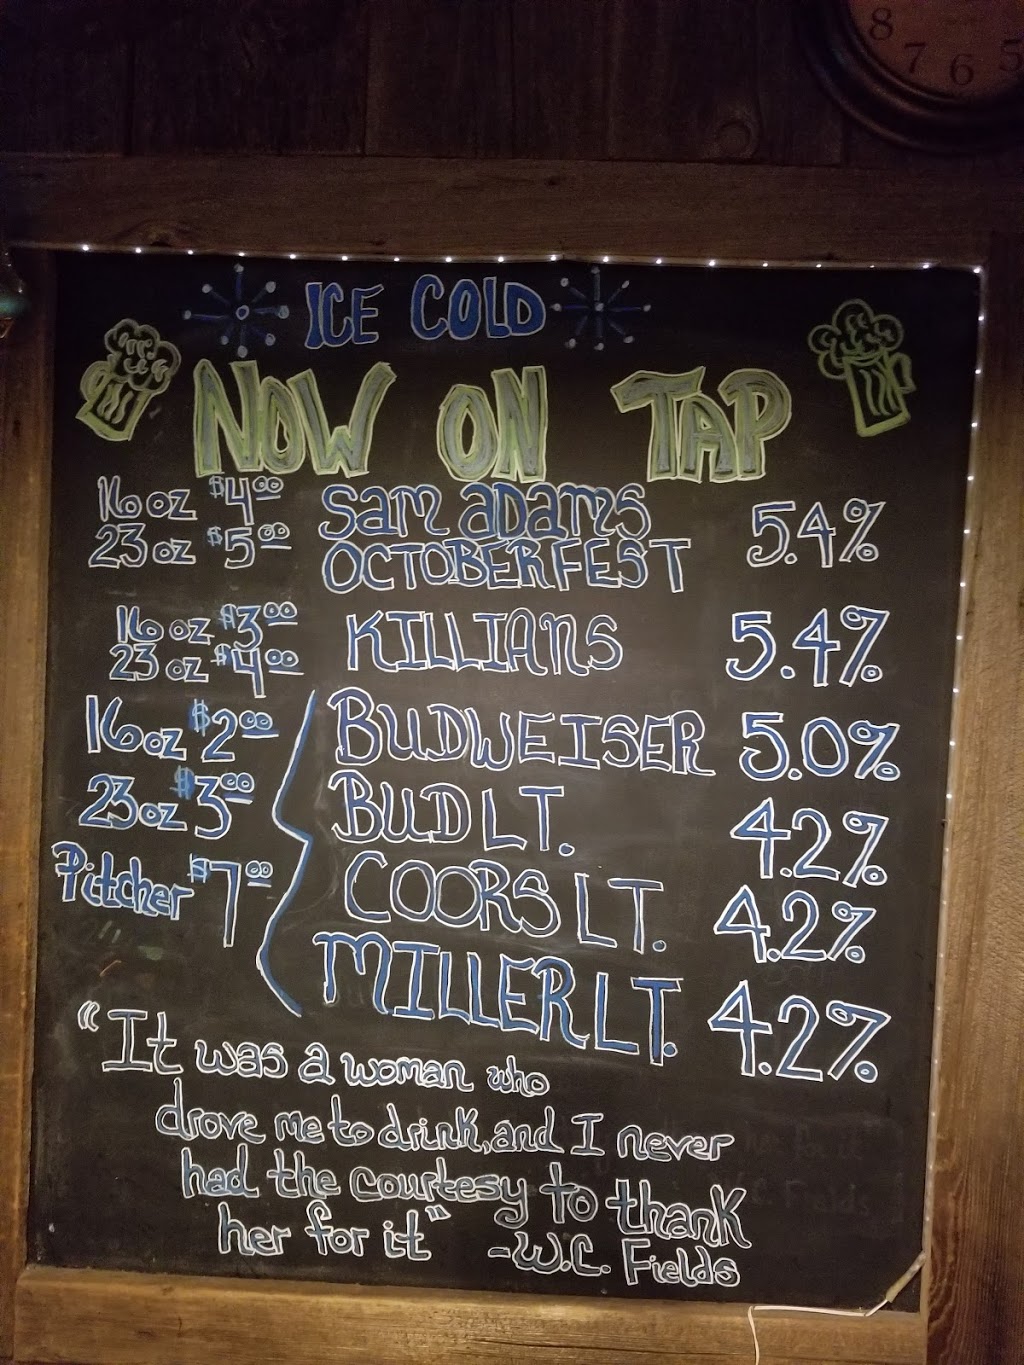 8 7 6 5
ICE COLD
NOW ON TAP
16 oz $4.00 SAM ADAMS
23 oz $5.00 OCTOBERFEST 5.4%
16 oz $3.00 KILLIANS 5.4%
23 oz $4.00
16 oz $2.00 BUDWEISER 5.0%
23 oz $3.00 BUD LT. 4.2%
Pitcher $7.00 COORS LT. 4.2%
MILLER LT. 4.2%
"It was a woman who
drove me to drink, and I never
had the courtesy to thank
her for it" -W.C. Fields